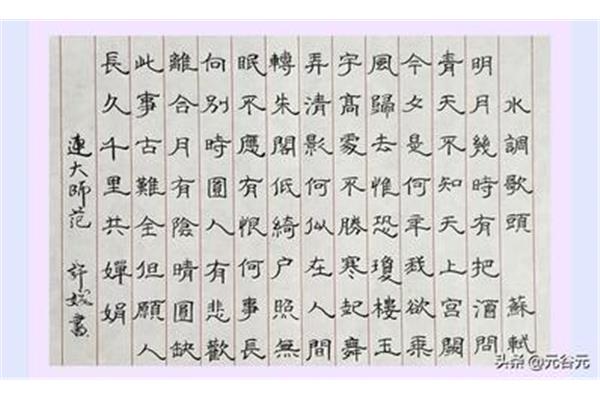 水調歌頭 蘇軾
明月幾時有把酒問
青天不知天上宮闕
今夕是何年我欲乘
風歸去惟恐瓊樓玉
宇高處不勝寒起舞
弄清影何似在人間
轉朱閣低綺户照無
眠不應有恨何事長
向別時圓人有悲歡
離合月有陰晴圓缺
此事古難全但願人
長久千里共嬋娟
連大師范 許書
头条 @元谷元